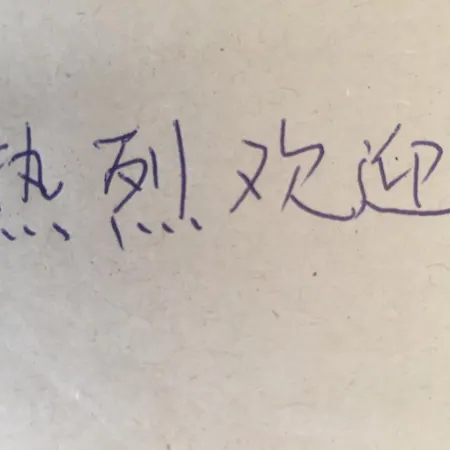 热烈欢迎